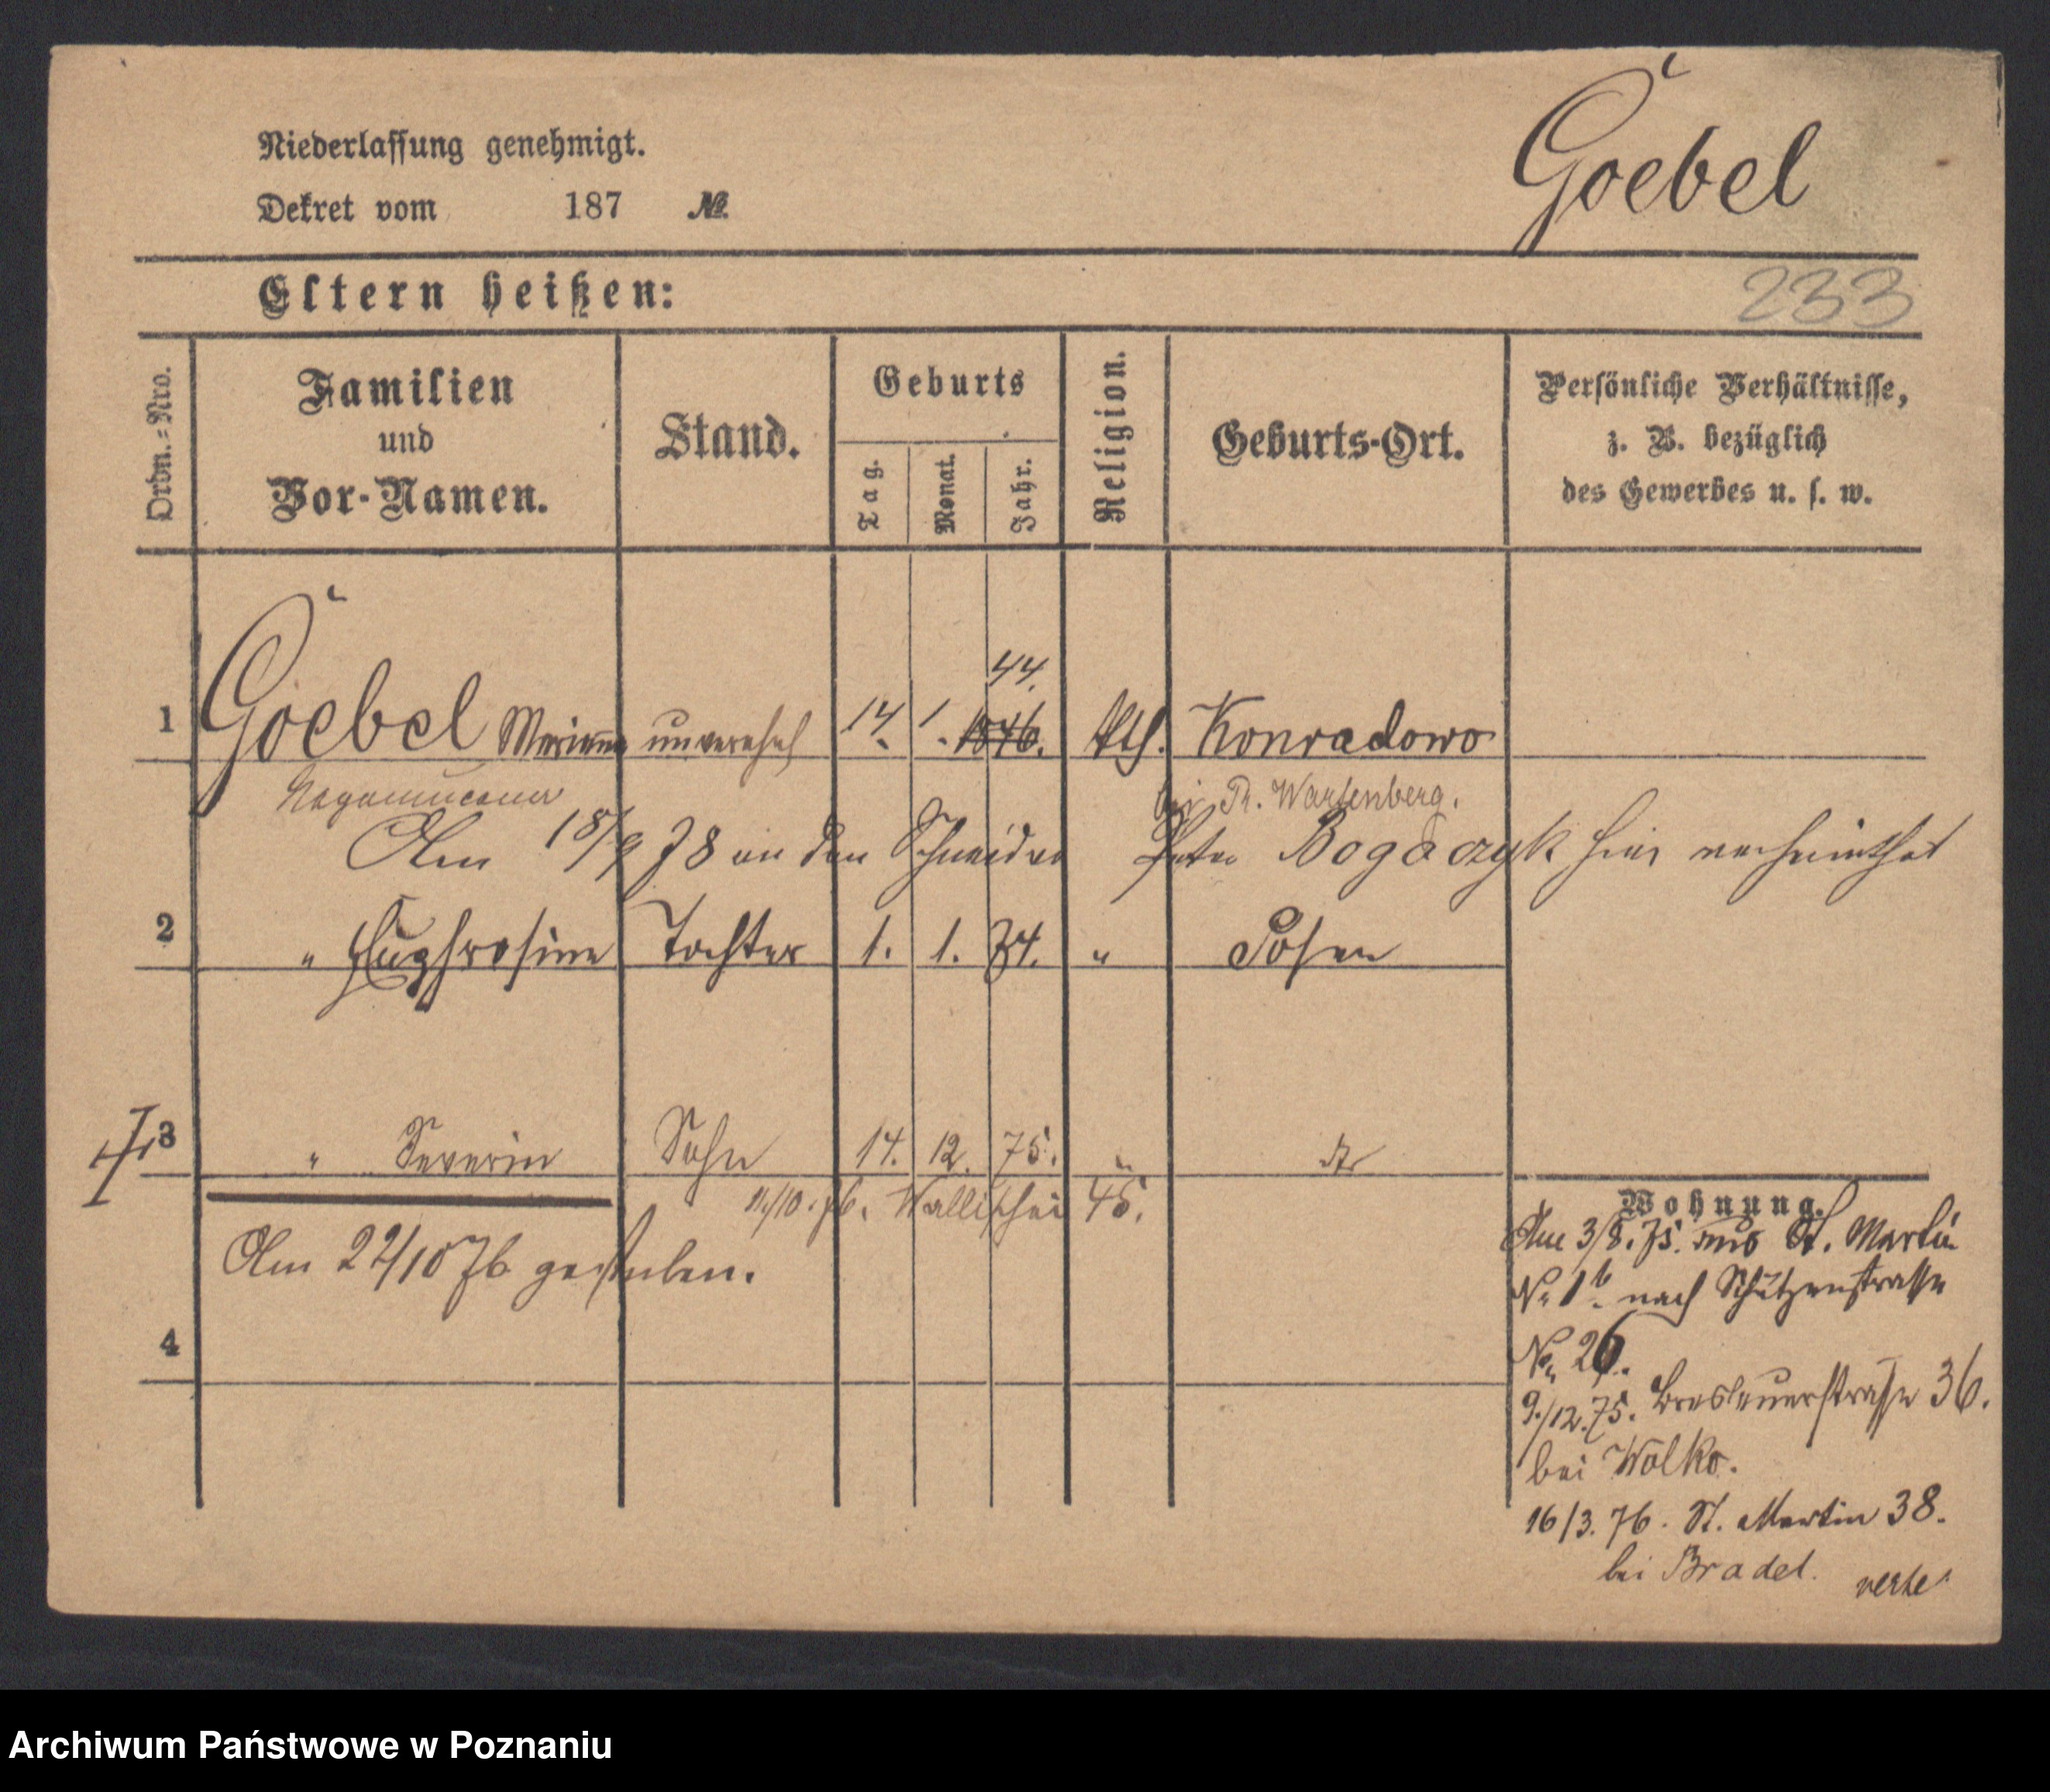 Niederlassung genehmigt.
Dekret vom 187 №.
Goebel
Eltern heißen:
233
Ordn.=Nro.
Familien
und
Vor-Namen.
Stand.
Geburts
Tag.
Monat.
Jahr.
Religion.
Geburts-Ort.
Persönliche Verhältnisse,
z. B. bezüglich
des Gewerbes u. s. w.
44.
1 Goebel Marianna unverehel 14. 1. 1846. kth. Konradowo
bei P. Wartenberg.
Am 18/9 78 an den Schneider Peter Bogaczyk hier verheirathet
2 " Euphrosine Tochter 1. 1. 74. " Posen
3 " Severin Sohn 14. 12. 75. "
11/10. 76. Wallischei 45.
Am 22/10 76 gestorben.
4
Wohnung.
Am 3/8. 75. aus St. Martin
No 1b. nach Schützenstrasse
No 26.
9./12. 75. Breslauerstrasse 36.
bei Wolko.
16/3. 76. St. Martin 38.
bei Bradel. verte
Archiwum Państwowe w Poznaniu